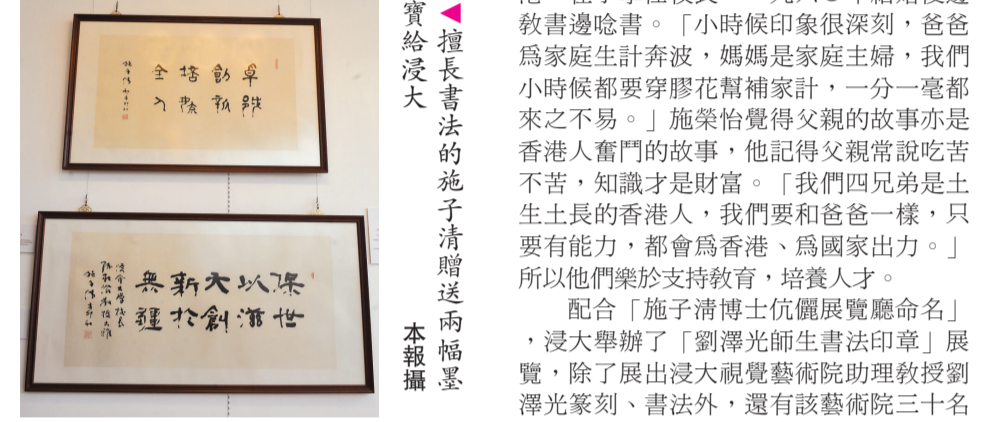 創新
全人
保世
以滋
大創
新於
無疆
◀擅長書法的施子清贈送兩幅墨
寶給浸大
本報攝
敎書邊唸書。「小時候印象很深刻，爸爸
爲家庭生計奔波，媽媽是家庭主婦，我們
小時候都要穿膠花幫補家計，一分一毫都
來之不易。」施榮怡覺得父親的故事亦是
香港人奮鬥的故事，他記得父親常說吃苦
不苦，知識才是財富。「我們四兄弟是土
生土長的香港人，我們要和爸爸一樣，只
要有能力，都會爲香港、爲國家出力。」
所以他們樂於支持敎育，培養人才。
配合「施子淸博士伉儷展覽廳命名」
，浸大舉辦了「劉澤光師生書法印章」展
覽，除了展出浸大視覺藝術院助理敎授劉
澤光篆刻、書法外，還有該藝術院三十名